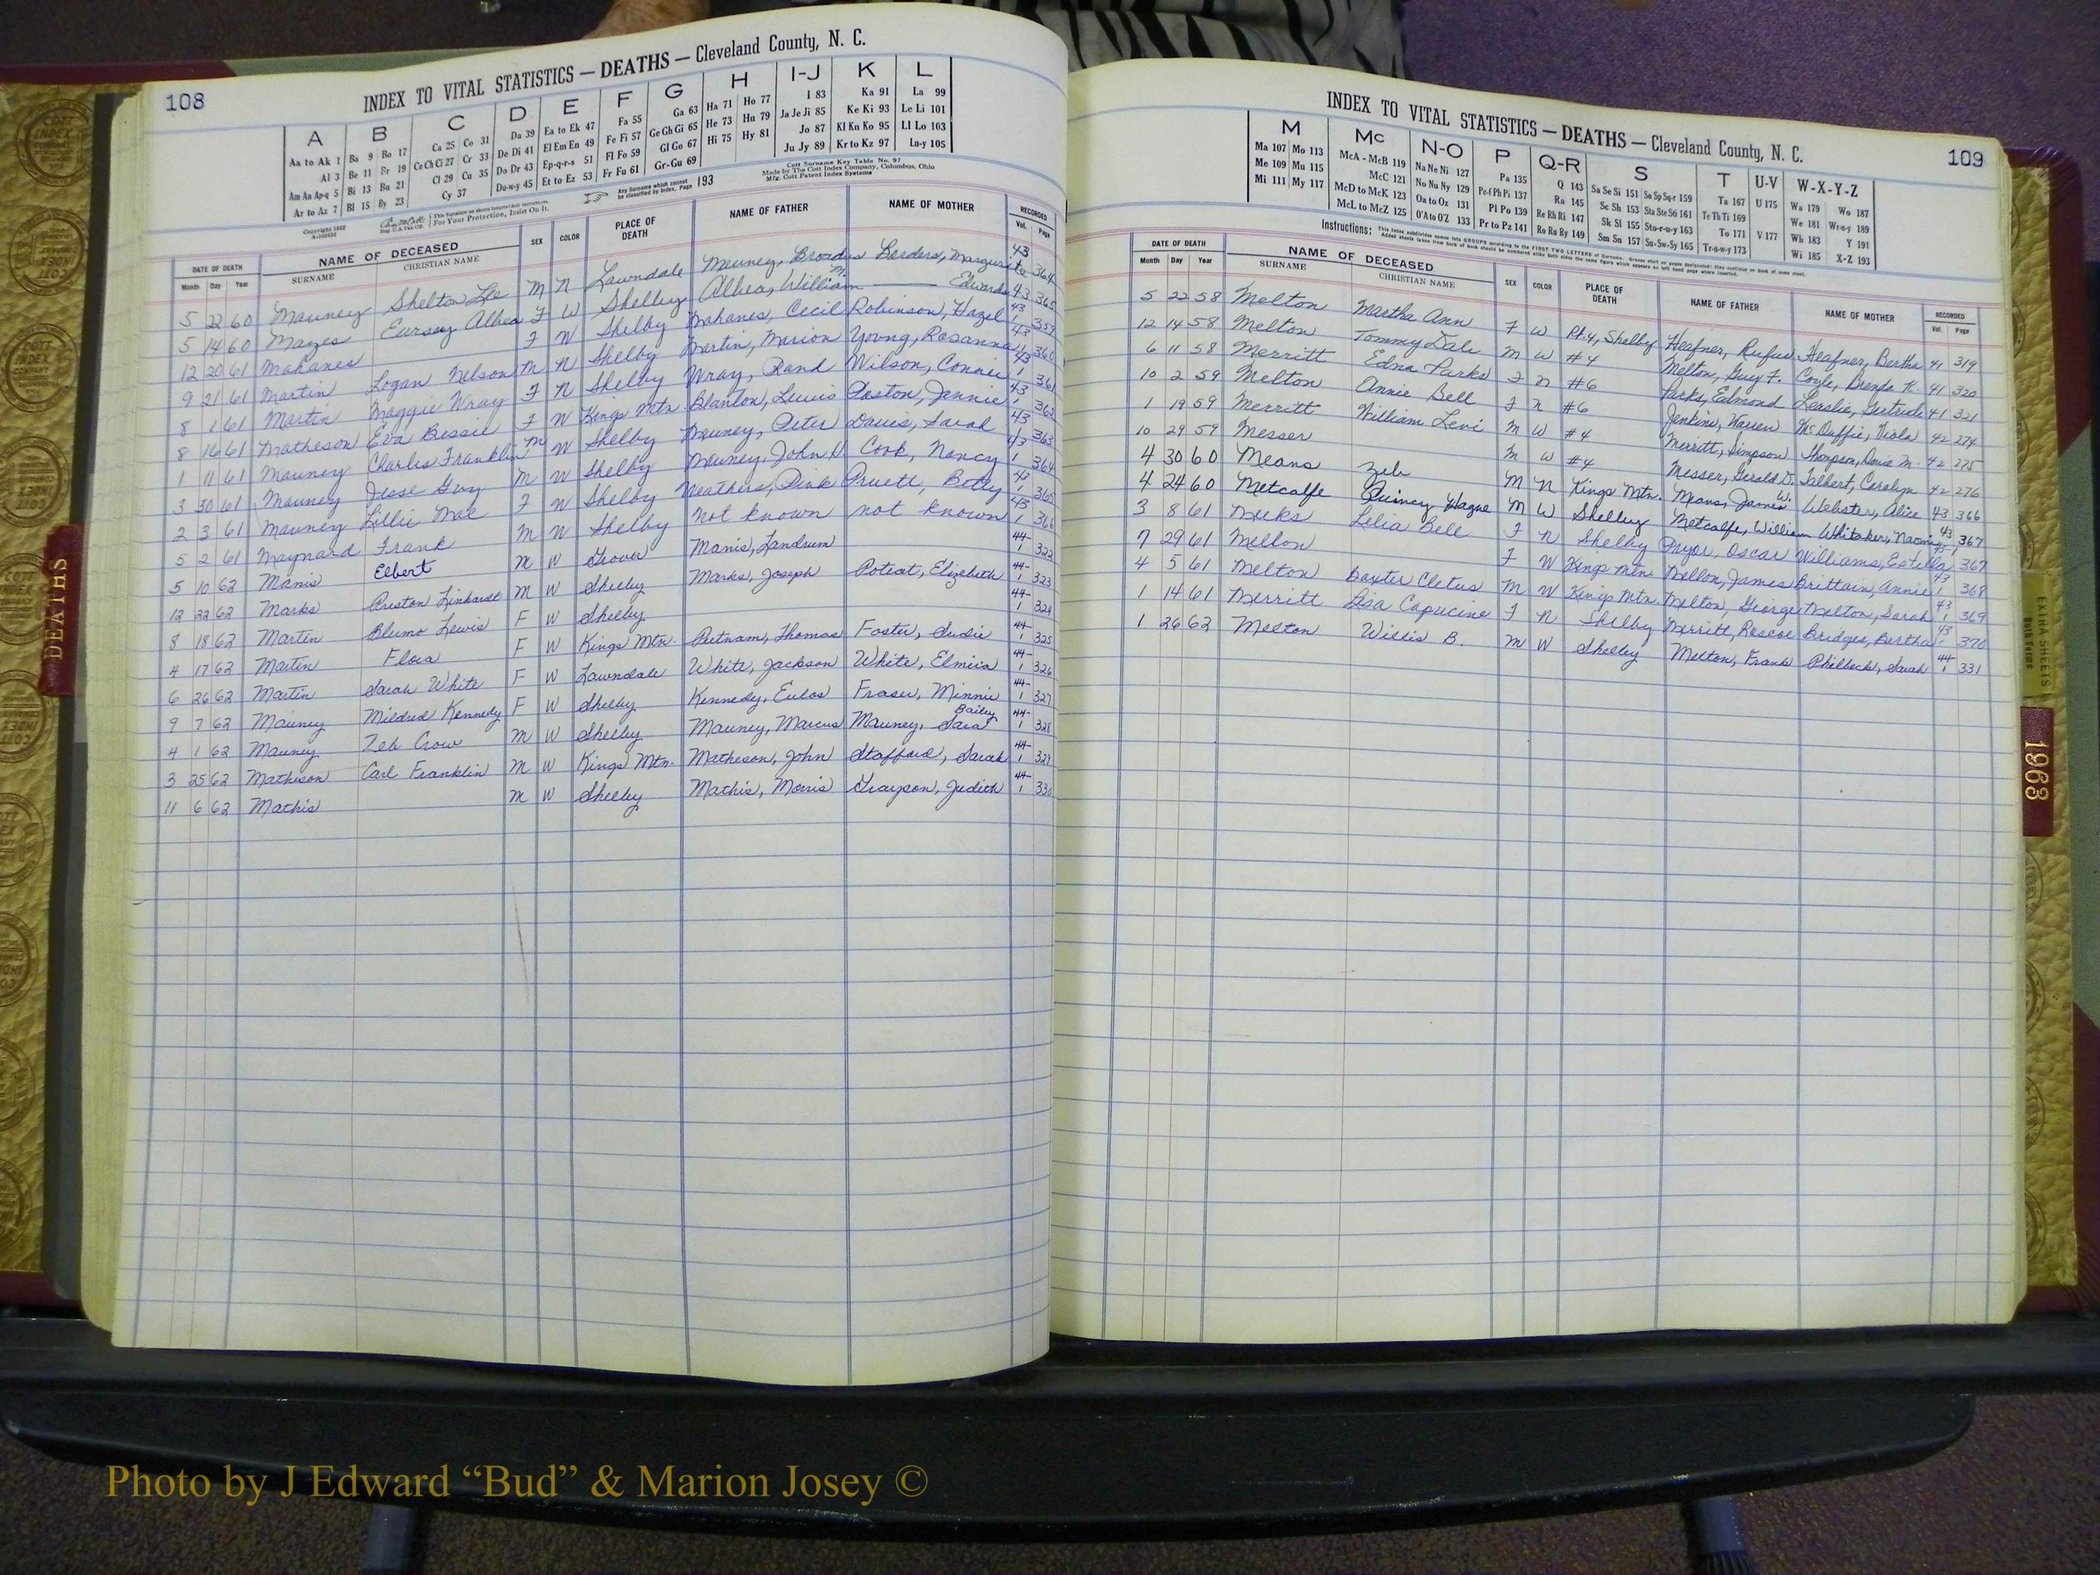 108
INDEX TO VITAL STATISTICS — DEATHS — Cleveland County, N. C.
A B C D E F G H I-J K L
Aa to Ak 1 Ba 9 Bo 17 Ca 25 Co 31 Da 39 Ea to Ek 47 Fa 55 Ga 63 Ha 71 Ho 77 I 83 Ka 91 La 99
Al 3 Be 11 Br 19 Ce Ch Ci 27 Cr 33 De Di 41 El Em En 49 Fe Fi 57 Ge Gh Gi 65 He 73 Hu 79 Ja Je Ji 85 Ke Ki 93 Le Li 101
Am An Ap-q 5 Bi 13 Bu 21 Cl 29 Cu 35 Do Dr 43 Ep-q-r-s 51 Fl Fo 59 Gl Go 67 Hi 75 Hy 81 Jo 87 Kl Kn Ko 95 Ll Lo 103
Ar to Az 7 Bl 15 By 23 Cy 37 Du-w-y 45 Et to Ez 53 Fr Fu 61 Gr-Gu 69 Ju Jy 89 Kr to Kz 97 Lu-y 105
For Your Protection, Insist On It.
Any Surname which cannot be classified by Index, Page 193
Cott Surname Key Table No. 97
Made by The Cott Index Company, Columbus, Ohio
Mfg. Cott Patent Index Systems
DATE OF DEATH NAME OF DECEASED SEX COLOR PLACE OF DEATH NAME OF FATHER NAME OF MOTHER RECORDED
Month Day Year SURNAME CHRISTIAN NAME Vol. Page
5 22 60 Mauney Shelton Lee M N Lawndale Mauney, Broadus Borders, Marguerite 43 364
5 14 60 Mayes Eursey Albea F W Shelby Albea, William M. —— Edwards 43 365
12 20 61 Mahanes F W Shelby Mahanes, Cecil Robinson, Hazel 43 1 359
9 21 61 Martin Logan Nelson M N Shelby Martin, Marion Young, Rosanna 43 1 360
8 1 61 Martin Maggie Wray F N Shelby Wray, Rand Wilson, Connie 43 1 361
8 16 61 Matheson Eva Bessie F W Kings Mtn Blanton, Lewis Poston, Jennie 43 1 362
1 11 61 Mauney Charles Franklin M W Shelby Mauney, Peter Davis, Sarah 43 363
3 30 61 Mauney Jesse Guy M W Shelby Mauney, John D Cook, Nancy 43 1 364
2 3 61 Mauney Lillie Mae F W Shelby Weathers, Pink Pruett, Betty 43 1 365
5 2 61 Maynard Frank M W Shelby not known not known 43 1 366
5 10 62 Manis Elbert M W Grover Manis, Landrum 44- 1 322
12 22 62 Marks Preston Linhardt M W Shelby Marks, Joseph Poteat, Elizabeth 44- 1 323
8 18 62 Martin Blume Lewis F W Shelby 44- 1 324
4 17 62 Martin Flora F W Kings Mtn. Putnam, Thomas Foster, Sudie 44- 1 325
6 26 62 Martin Sarah White F W Lawndale White, Jackson White, Elmira 44- 1 326
9 7 62 Mauney Mildred Kennedy F W Shelby Kennedy, Eulos Fraser, Minnie 44- 1 327
4 1 62 Mauney Zeb Crow M W Shelby Mauney, Marcus Mauney, Sara Bailey 44- 1 328
3 25 62 Matheson Carl Franklin M W Kings Mtn. Matheson, John Stafford, Sarah 44- 1 329
11 6 62 Mathis M W Shelby Mathis, Morris Grayson, Judith 44- 1 330
INDEX TO VITAL STATISTICS — DEATHS — Cleveland County, N. C.
109
M Mc N-O P Q-R S T U-V W-X-Y-Z
Ma 107 Mo 113 McA - McB 119 Na Ne Ni 127 Pa 135 Q 143 Sa Se Si 151 So Sp Sq-r 159 Ta 167 U 175 Wa 179 Wo 187
Me 109 Mu 115 McC 121 No Nu Ny 129 Pe-f Ph Pi 137 Ra 145 Sc Sh 153 Sta Ste Sti 161 Te Th Ti 169 We 181 Wr-u-y 189
Mi 111 My 117 McD to McK 123 Oa to Oz 131 Pl Po 139 Re Rh Ri 147 Sk Sl 155 Sto-r-u-y 163 To 171 V 177 Wh 183 Y 191
McL to McZ 125 O'A to O'Z 133 Pr to Pz 141 Ro Ru Ry 149 Sm Sn 157 Su-Sw-Sy 165 Tr-u-w-y 173 Wi 185 X-Z 193
Instructions:
DATE OF DEATH NAME OF DECEASED SEX COLOR PLACE OF DEATH NAME OF FATHER NAME OF MOTHER RECORDED
Month Day Year SURNAME CHRISTIAN NAME Vol. Page
5 22 58 Melton Martha Ann F W Rt. 4, Shelby Heafner, Rufus Heafner, Bertha 41 319
12 14 58 Melton Tommy Dale M W #4 Melton, Guy F. Coyle, Brenda K. 41 320
6 11 58 Merritt Edna Parks F N #6 Parks, Edmond Gertrude 41 321
10 2 59 Melton Annie Bell F N #6 Jenkins, Warren McDuffie, Viola 42 274
1 19 59 Merritt William Levi M W #4 Merritt, Simpson Thompson, Dovie M. 42 275
10 29 59 Messer M W #4 Messer, Gerald D. Talbert, Carolyn 42 276
4 30 60 Means Zeb M N Kings Mtn. Means, James W. Webster, Alice 43 366
4 24 60 Metcalfe Quincy Hague M W Shelby Metcalfe, William Whitaker, Naomi 43 367
3 8 61 Meeks Lelia Bell F N Shelby Pryor, Oscar Williams, Estella 43-1 367
7 29 61 Mellon F W Kings Mtn. Mellon, James Brittain, Annie 43 1 368
4 5 61 Melton Baxter Cletus M W Kings Mtn. Melton, George Melton, Sarah 43 1 369
1 14 61 Merritt Lisa Capucine F N Shelby Merritt, Roscoe Bridges, Bertha 43 1 370
1 26 62 Melton Willis B. M W Shelby Melton, Frank Philbeck, Sarah 44 1 331
DEATHS
EXTRA SHEETS
1963
Photo by J Edward “Bud” & Marion Josey ©